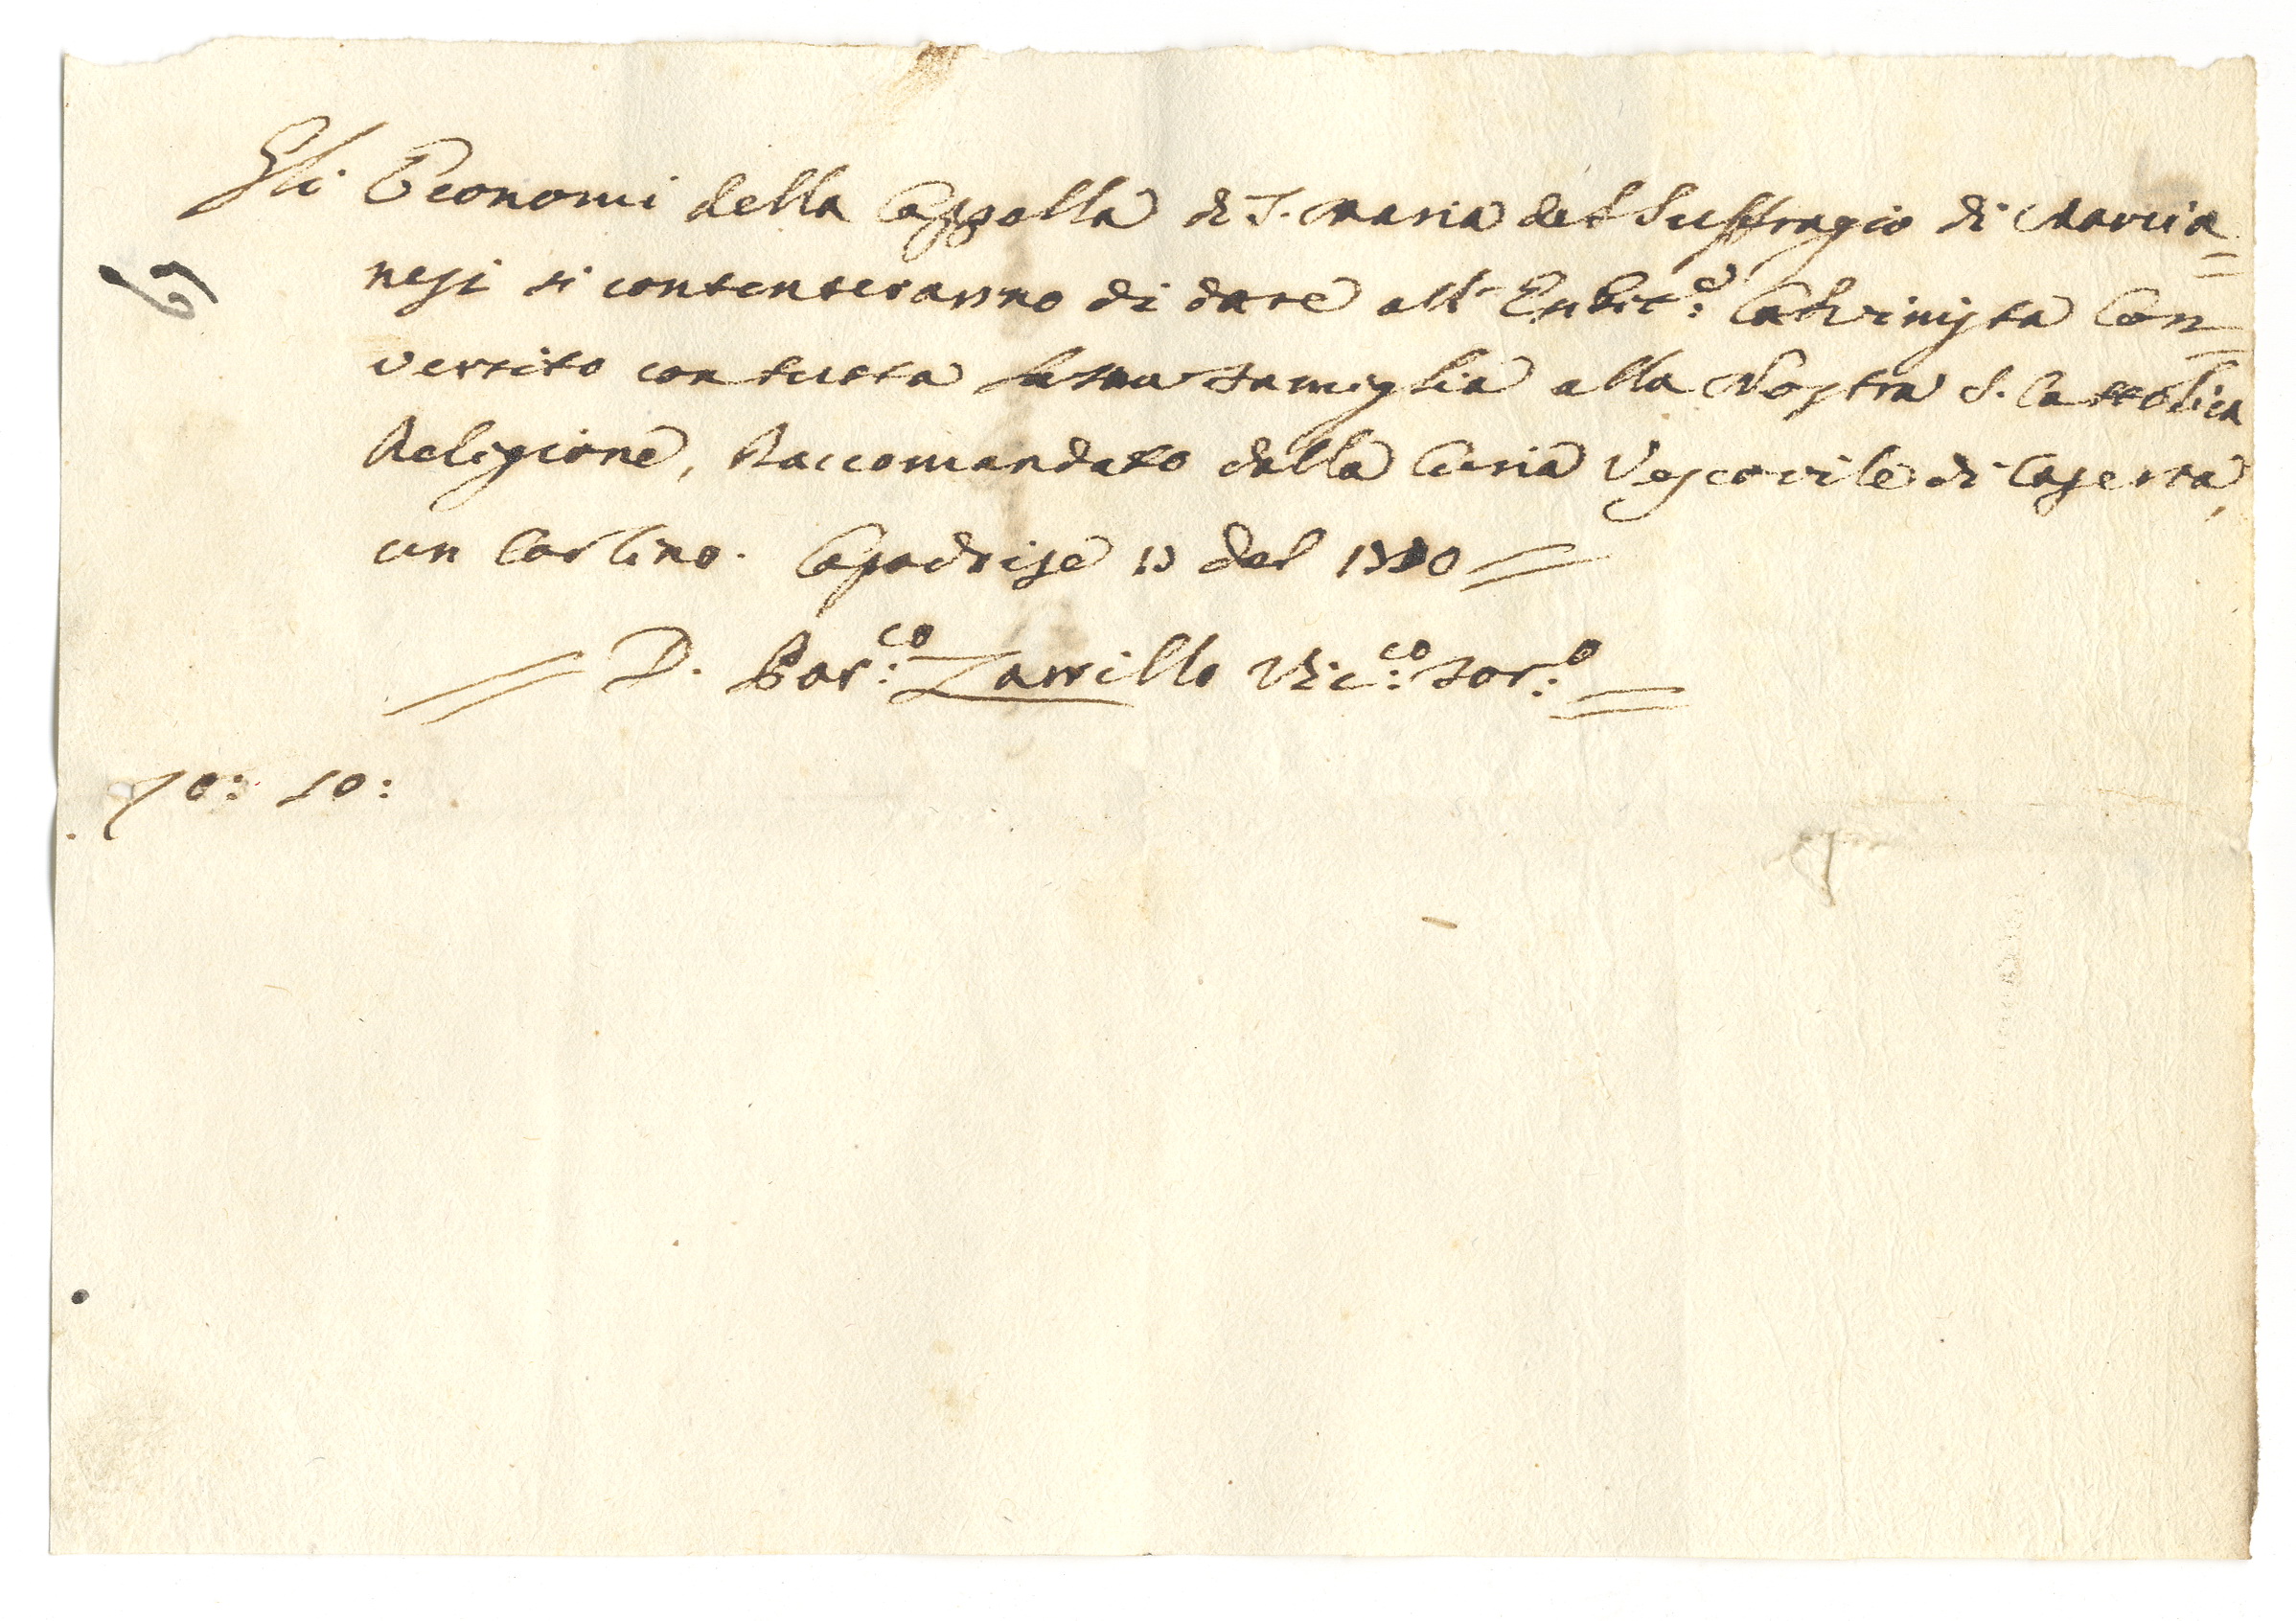 Gli Economi della Cappella di S. Maria del Suffragio di Marcia=
nesi si contenteranno di dare all' Calvinista Con=
vertito con tutta la sua famiglia alla Nostra S. Cattolica
Religione, Raccomandato dalla Curia Vescovile di Caserta,
un Carlino. Capodrise del
D. Par:co Zarrillo Vic:co For:o
0: 10: